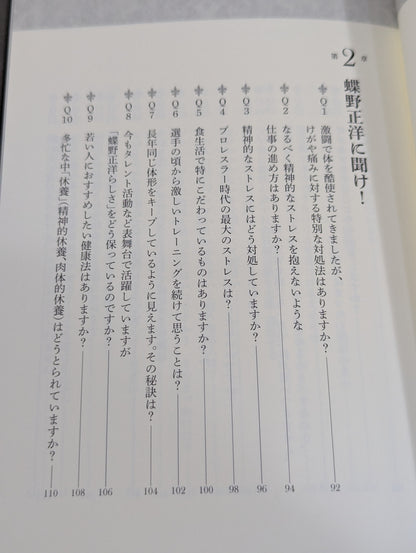 第2章 蝶野正洋に聞け!
Q1 激闘で体を酷使されてきましたが、
けがや痛みに対する特別な対処法はありますか? 92
Q2 なるべく精神的なストレスを抱えないような
仕事の進め方はありますか? 94
Q3 精神的なストレスにはどう対処していますか? 96
Q4 プロレスラー時代の最大のストレスは? 98
Q5 食生活で特にこだわっているものはありますか? 100
Q6 選手の頃から激しいトレーニングを続けて思うことは? 102
Q7 長年同じ体形をキープしているように見えます。その秘訣は? 104
Q8 今もタレント活動など表舞台で活躍していますが
「蝶野正洋らしさ」をどう保っているのですか? 106
Q9 若い人におすすめしたい健康法はありますか? 108
Q10 多忙な中「休養」(精神的休養、肉体的休養)はどうとられていますか? 110